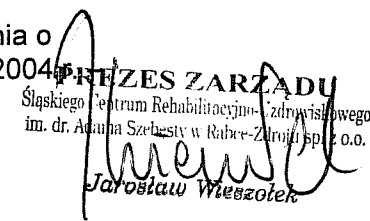 nia o
2004r.
PREZES ZARZĄDU
Śląskiego Centrum Rehabilitacyjno-Uzdrowiskowego
im. dr. Adama Szebesty w Rabce-Zdroju sp. z o.o.
Jarosław Wieszołek